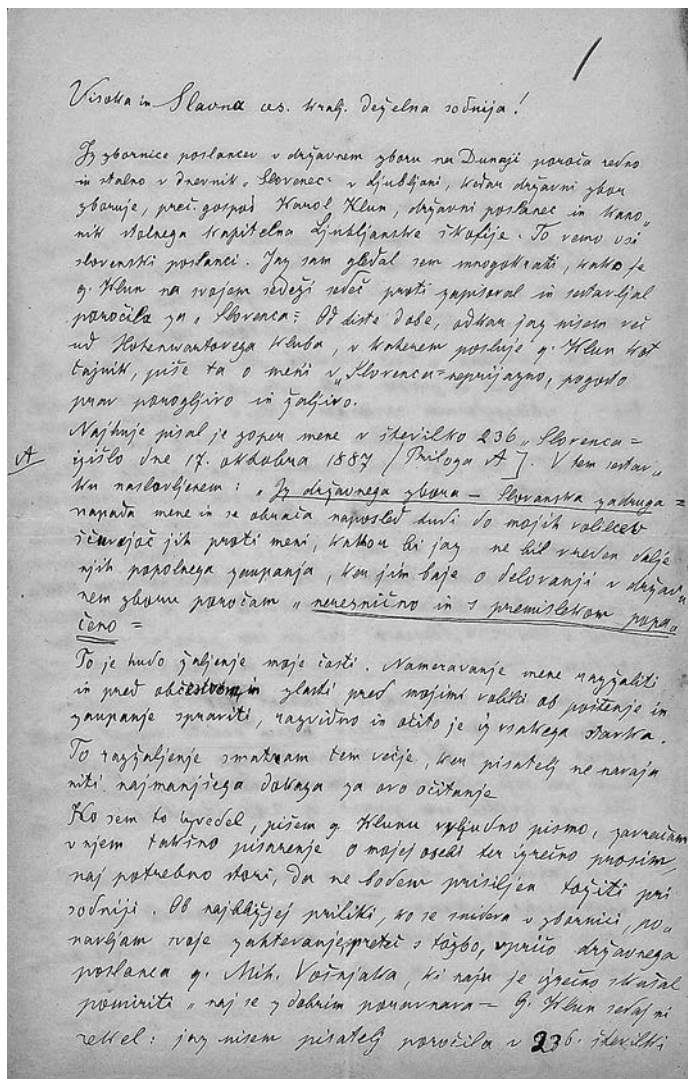 1
Visoka in Slavna ces. kralj. deželna sodnija!
Iz zbornice poslancev v državnem zboru na Dunaji poroča redno
in stalno v dnevnik „Slovenec" v Ljubljani, kedar državni zbor
zboruje, preč. gospod Karol Klun, državni poslanec in kano„
nik stolnega kapitelna Ljubljanske škofije. To vemo vsi
slovenski poslanci. Jaz sam gledal sem mnogokrati, kako je
g. Klun na svojem sedeži sedeč proti zapisoval in sestavljal
poročila za „Slovenca". Od tiste dobe, odkar jaz nisem več
ud Hohenwartovega kluba, v katerem posluje g. Klun kot
tajnik, piše ta o meni v „Slovenca" neprijazno, pogosto
prav porogljivo in žaljivo.
Najhuje pisal je zoper mene v številko 236 „Slovenca"
A
izišlo dne 17. oktobra 1887 [Priloga A]. V tem sestav„
ku naslovljenem: „Iz državnega zbora – Slovanska zadruga"
napada mene in se obrača naposled tudi do mojih volilcev
ščuvajoč jih proti meni, kakor bi jaz ne bil vreden dalje
njih popolnega zaupanja, ker jim baje o delovanji v držav„
nem zboru poročam „neresnično in s premislekom popa„
čeno"
To je hudo žaljenje moje časti. Nameravanje mene razžaliti
in pred občestvom in zlasti pred mojimi volilci ob poštenje in
zaupanje spraviti, razvidno in očito je iz vsakega stavka.
To razžaljenje smatram tem večje, ker pisatelj ne navaja
niti najmanjšega dokaza za ovo očitanje
Ko sem to izvedel, pišem g. Klunu vljudno pismo, zavračam
v njem takšno pisarenje o mojej osebi ter izrečno prosim,
naj potrebno stori, da ne bodem prisiljen tožiti pri
sodniji. Ob najbližjej priliki, ko se snideva v zbornici, po„
navljam svoje zahtevanje preteč s tožbo, vpričo državnega
poslanca g. Mih. Vošnjaka, ki naju je izrečno skušal
pomiriti „naj se z dobrim poravnava" G. Klun sedaj ni
rekel: jaz nisem pisatelj poročila v 236. številki